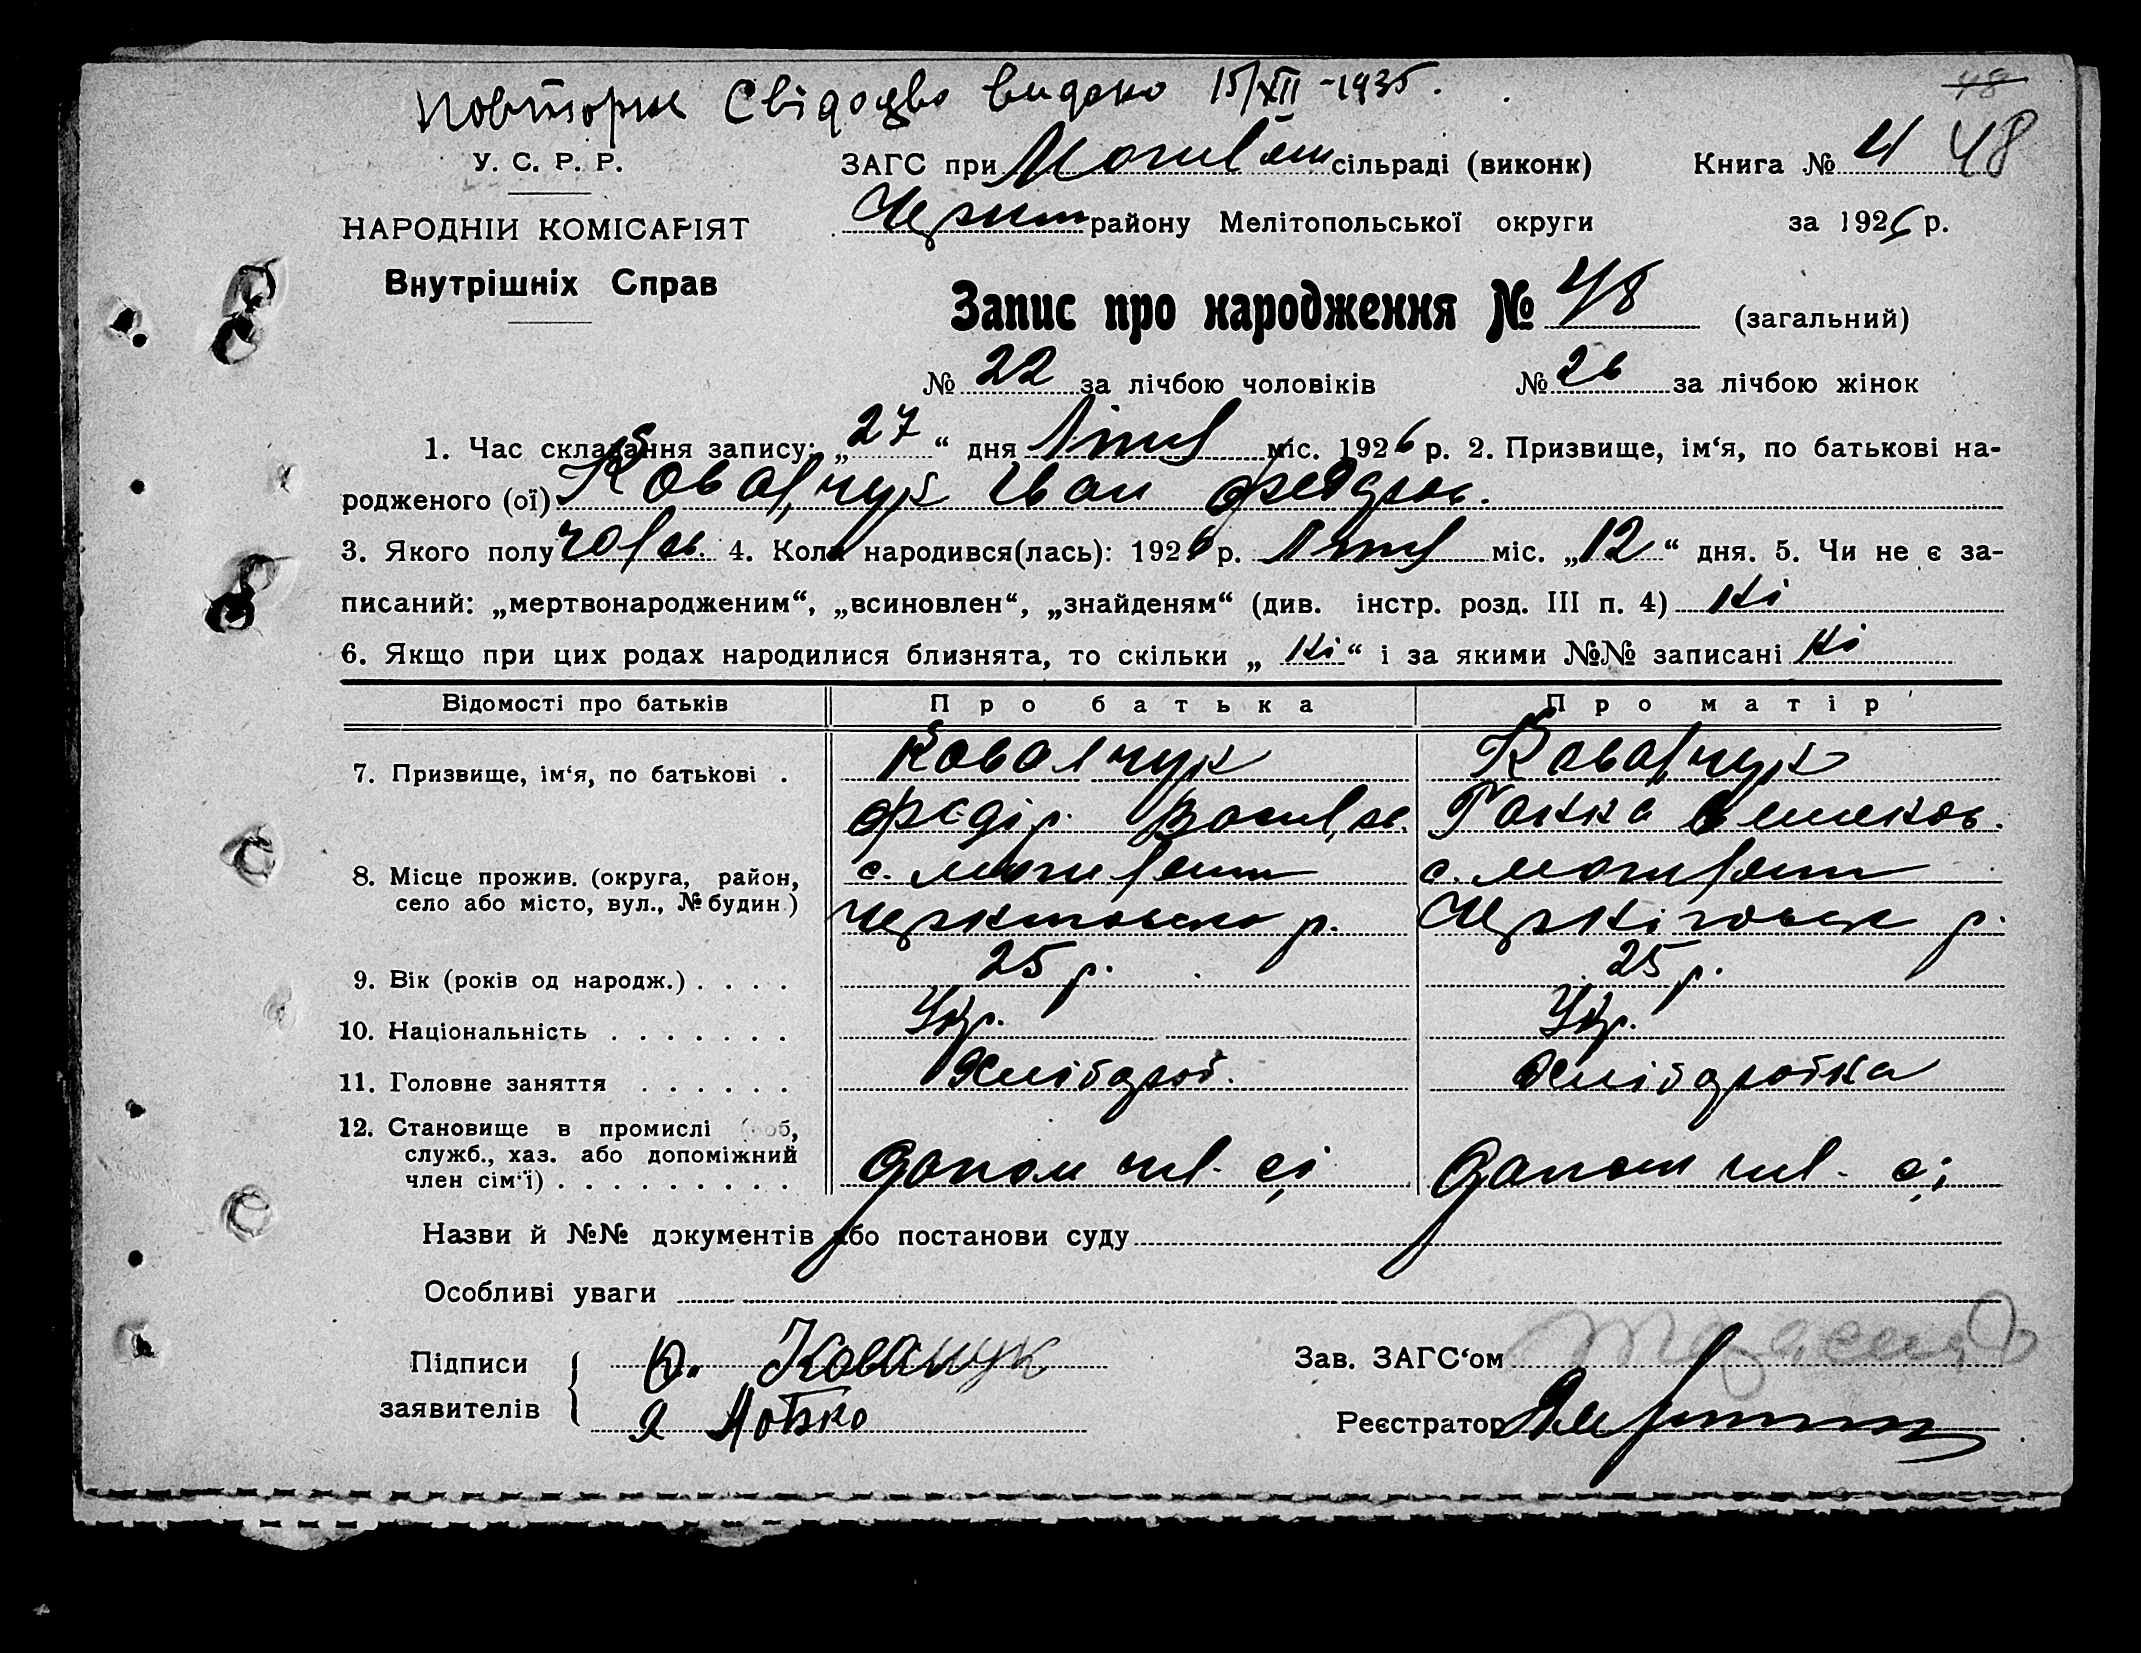 Повторне Свідоцтво видано 15/XII - 1935.
48
У. С. Р. Р.
ЗАГС при сільраді (виконк)
Книга № 4 48
НАРОДНІЙ КОМІСАРІЯТ
району Мелітопольської округи
за 1926 р.
Внутрішніх Справ
Запис про народження № 48 (загальний)
№ 22 за лічбою чоловіків № 26 за лічбою жінок
1. Час складання запису: „27“ дня міс. 1926 р. 2. Призвище, ім‘я, по батькові на-
родженого (ої) Ковальчук Іван Федоров.
3. Якого полу чолов. 4. Коли народився(лась): 1926 р. міс. „12“ дня. 5. Чи не є за-
писаний: „мертвонародженим“, „всиновлен“, „знайденям“ (див. інстр. розд. III п. 4) Ні
6. Якщо при цих родах народилися близнята, то скільки „Ні“ і за якими №№ записані Ні
Відомості про батьків Про батька Про матір
7. Призвище, ім‘я, по батькові . Ковалчук Ковальчук
Федір Ганна
8. Місце прожив. (округа, район, с. с.
село або місто, вул., № будин.) р. р.
9. Вік (років од народж.) . . . . 25 р. 25 р.
10. Національність . . . . . . . Укр. Укр.
11. Головне заняття . . . . . . Хлібороб. Хліборобка
12. Становище в промислі (роб,
служб., хаз. або допоміжний допом чл. сі допом чл. сі
член сім‘ї) . . . . . . . . .
Назви й №№ документів або постанови суду
Особливі уваги
Підписи Ковальчук
Зав. ЗАГС‘ом
заявителів
Реєстратор